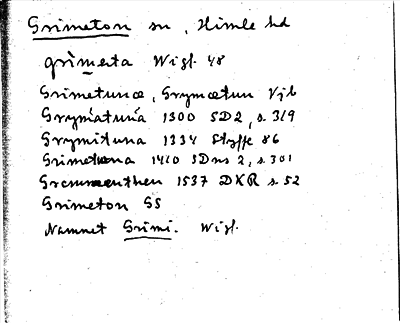 Grimeton sn, Himle hd
grìmeta Wigf. 48
Grimetunæ, Grymætun Vjb
Grymatuna 1300 SD2, s. 319
Grymituna 1334 Styffe 86
Grimetona 1410 SDns 2, s. 301
Gremmenthen 1537 DKR s. 52
Grimeton GS
Namnet Grimi. Wigf.